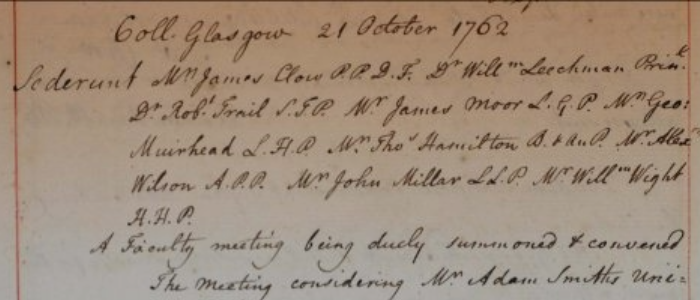 Coll. Glasgow 21 October 1762
Sederunt Mr James Clow P.P.D.F. Dr Willm Leechman Prinl.
Dr Robt Trail S.T.P. Mr James Moor L.G.P. Mr Geo:
Muirhead L.H.P. Mr Thos Hamilton B. & An.P. Mr Alexr
Wilson A.P.P. Mr John Millar L.L.P. Mr Willm Wight
H.H.P.
A Faculty meeting being duely summoned & convened
The meeting considering Mr Adam Smiths Uni=